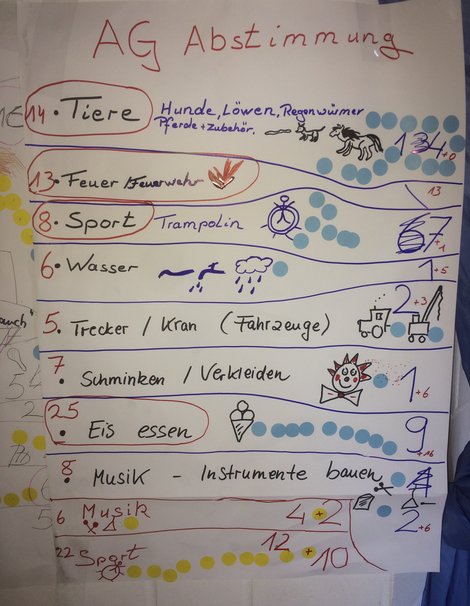 AG Abstimmung
14. Tiere Hunde, Löwen, Regenwürmer
Pferde + Zubehör.
14 +0
13. Feuer /Feuerwehr
13
8. Sport Trampolin 7 +1
6. Wasser 1 +5
5. Trecker / Kran (Fahrzeuge) 2 +3
7. Schminken / Verkleiden 1 +6
25. Eis essen 9 +16
8. Musik - Instrumente bauen
2 +6
6 Musik 4 + 2
22 Sport 12 + 10